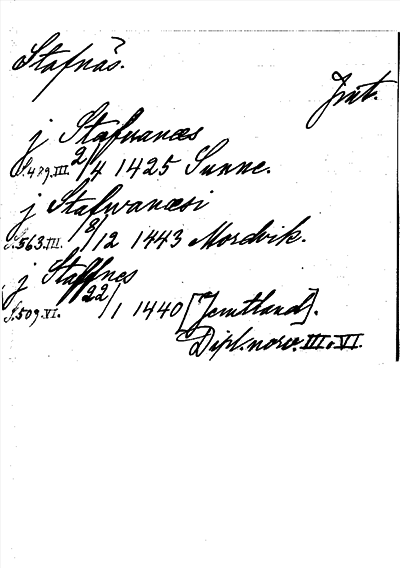 Stafnäs.
Jmt.
j Stafvanæs
S.479.III. 2/4 1425 Sunne.
j Stafwanæsi
S.563.III. 8/12 1443 Mordvik.
j Staffnes
S.509.VI. 22/1 1440 [Jemtland].
Dipl. norv. III o VI.